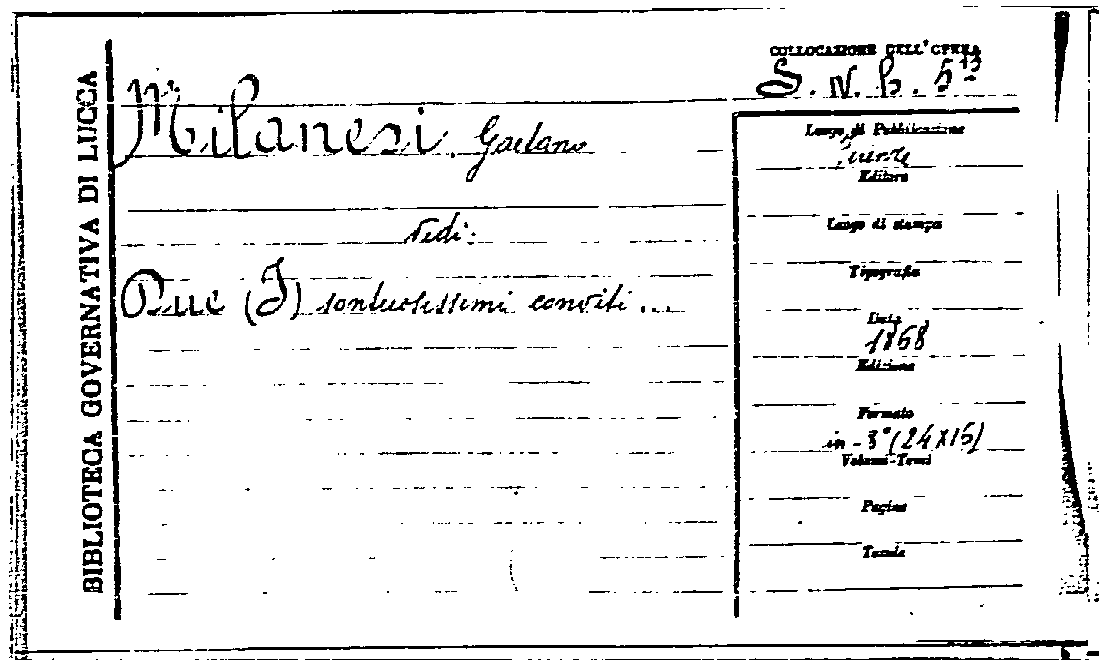 BIBLIOTECA GOVERNATIVA DI LUCCA
COLLOCAZIONE DELL'OPERA
S. N. b. 5
Milanesi Gaetano
Luogo di Pubblicazione
Firenze
Editore
Vedi:
Luogo di stampa
Tipografia
Due (I) sontuosissimi conviti ...
Data
1868
Edizione
Formato
in-8° (24x15)
Volumi-Tomi
Pagine
Tavole